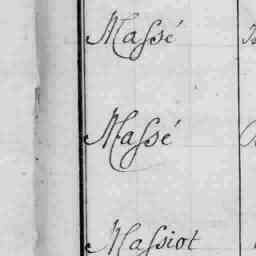 Massé
Massé
Massiot